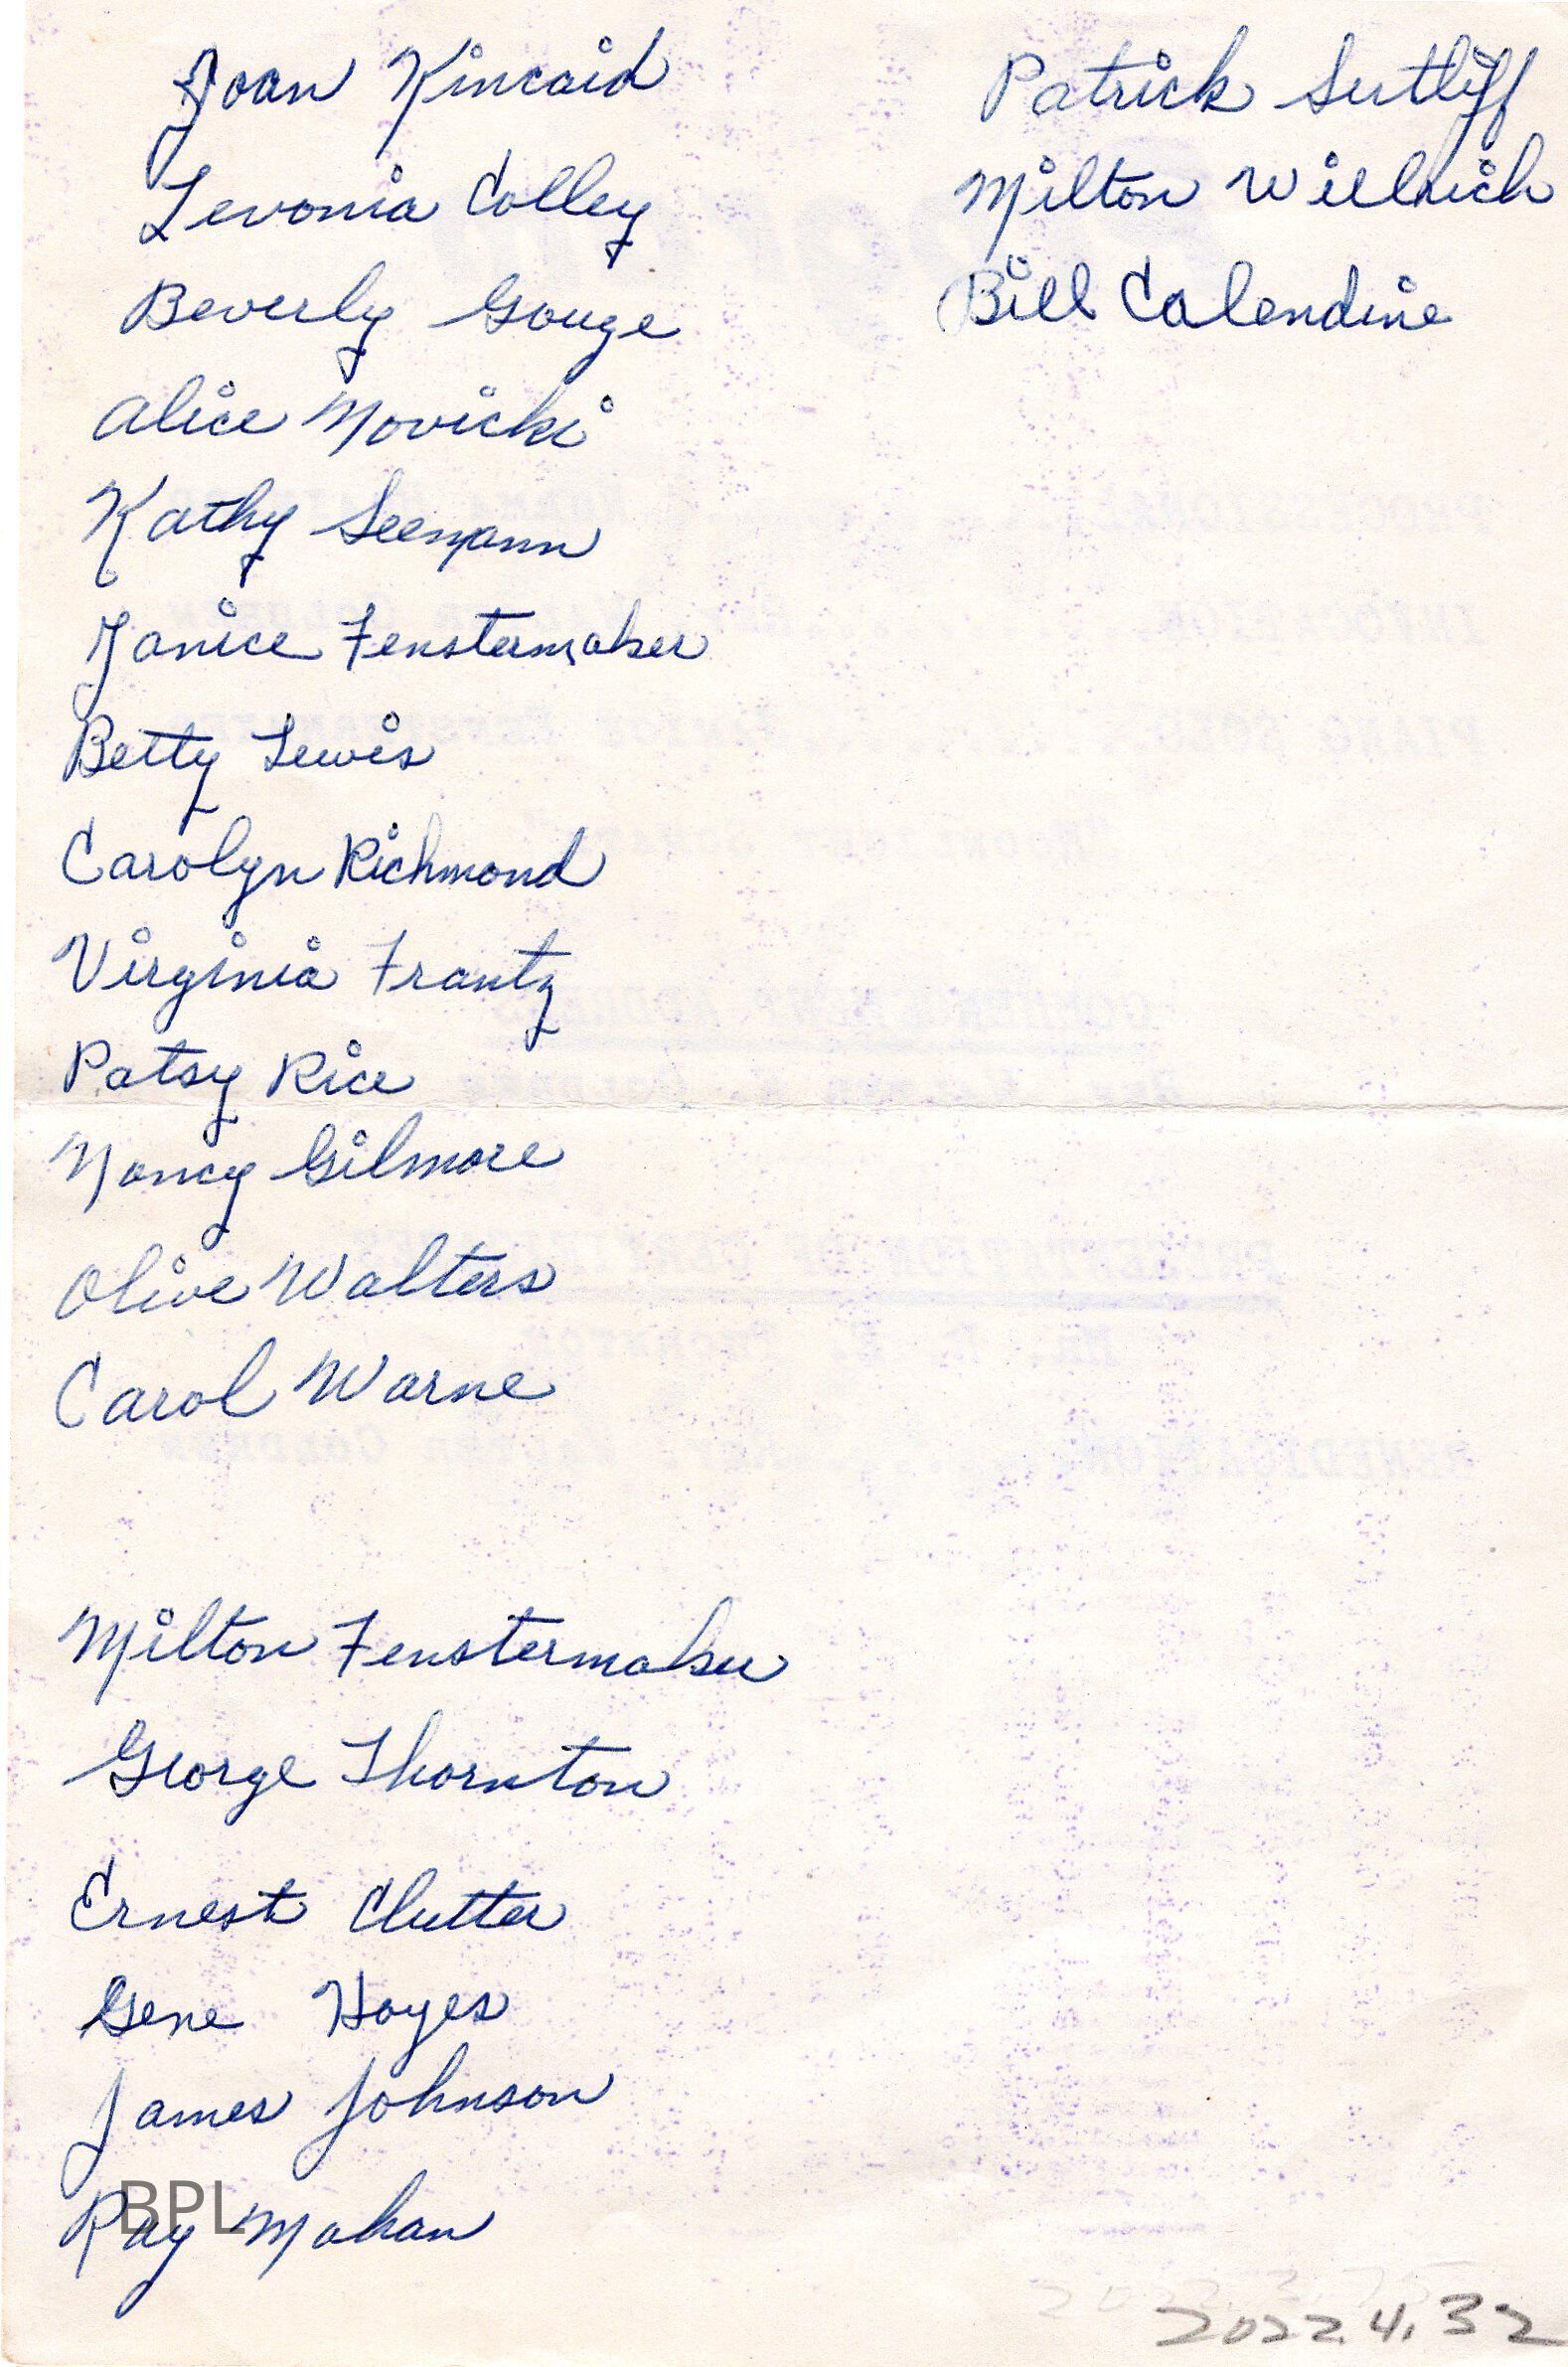 Joan Kincaid
Levonia Colley
Beverly Gouge
Alice Novicki
Kathy Seemann
Janice Fenstermaker
Betty Lewis
Carolyn Richmond
Virginia Frantz
Patsy Rice
Nancy Gilmore
Olive Walters
Carol Warne
Milton Fenstermaker
George Thornton
Ernest Clutter
Gene Hayes
James Johnson
Ray Mahan
BPL
Patrick Sutliff
Milton Willrich
Bill Calendine
2022.4.32